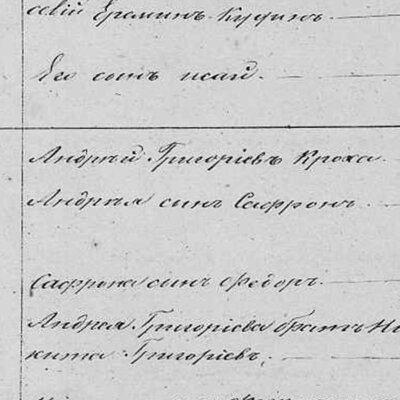 севій Ерминъ Куфинъ.
Его сынъ исай.
Андрѣй Григоріевъ Кроха.
Андрѣя сынъ Сафронъ.
Сафрона сынъ Федоръ.
Андрея Григоріева братъ Ни
кита Григоріевъ.